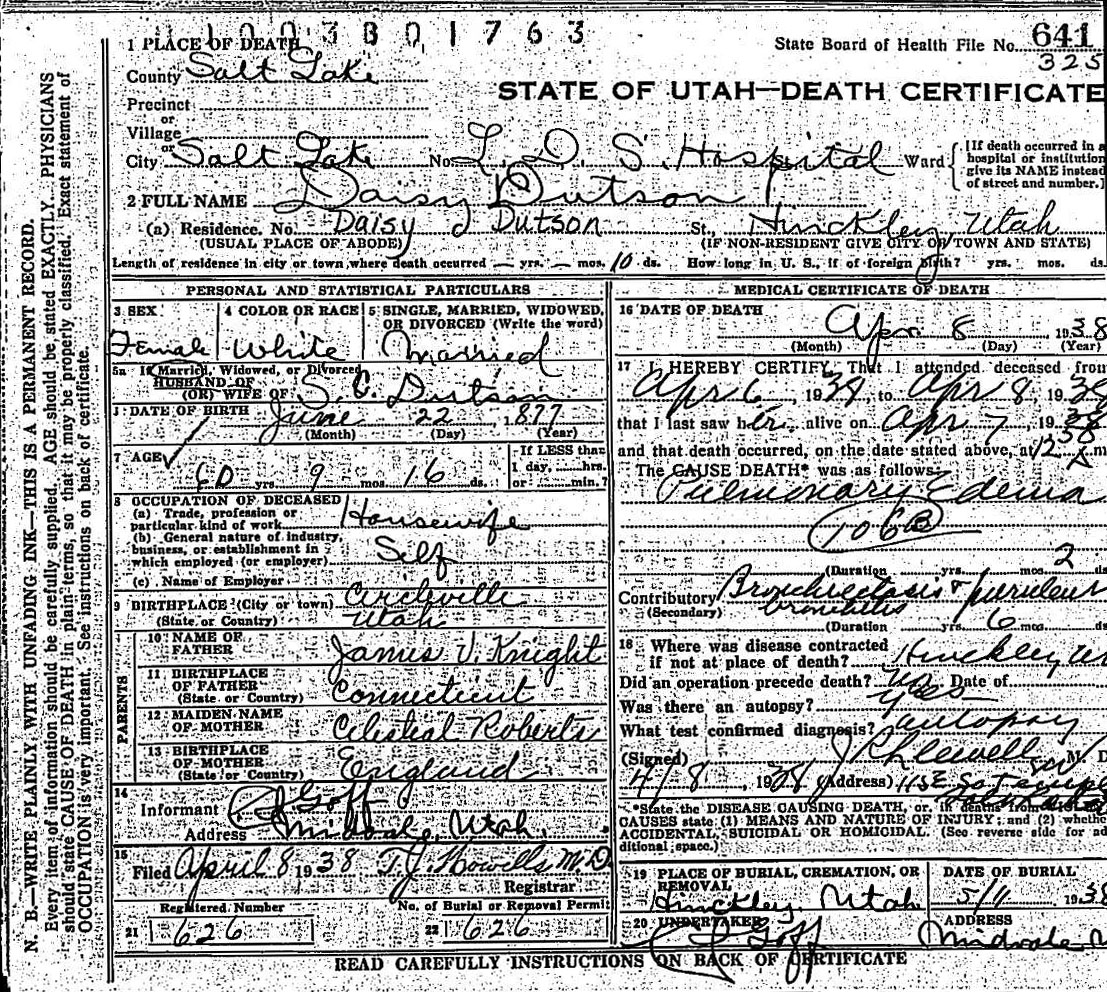 1 1 0 0 3 8 0 1 7 6 3
1 PLACE OF DEATH
State Board of Health File No. 641
325
County Salt Lake
STATE OF UTAH—DEATH CERTIFICATE
Precinct
or
Village
or
City Salt Lake No. L. D. S. Hospital St. Ward
[If death occurred in a
hospital or institution
give its NAME instead
of street and number.]
2 FULL NAME Daisy Dutson
(a) Residence. No. Daisy Dutson St., Hinckley, Utah
(USUAL PLACE OF ABODE) (IF NON-RESIDENT GIVE CITY OR TOWN AND STATE)
Length of residence in city or town where death occurred — yrs. — mos. 10 ds. How long in U. S., if of foreign birth? yrs. mos. ds.
PERSONAL AND STATISTICAL PARTICULARS
3 SEX 4 COLOR OR RACE 5 SINGLE, MARRIED, WIDOWED,
OR DIVORCED (Write the word)
Female White Married
5a If Married, Widowed, or Divorced
HUSBAND OF
(OR) WIFE OF S. C. Dutson
DATE OF BIRTH June 22, 1877
(Month) (Day) (Year)
7 AGE If LESS than
1 day, hrs.
60 yrs. 9 mos. 16 ds. or min.?
8 OCCUPATION OF DECEASED
(a) Trade, profession or
particular kind of work Housewife
(b) General nature of industry,
business, or establishment in
which employed (or employer) Self
(c) Name of Employer
9 BIRTHPLACE (City or town) Circleville
(State or Country) Utah
PARENTS
10 NAME OF
FATHER James V. Knight
11 BIRTHPLACE
OF FATHER
(State or Country) Connecticut
12 MAIDEN NAME
OF MOTHER Celestial Roberts
13 BIRTHPLACE
OF MOTHER
(State or Country) England
14
Informant Goff
Address Midvale, Utah.
15
Filed April 8 1938 T. J. Howells M.D.
Registrar
Registered Number No. of Burial or Removal Permit
21 626 22 626
MEDICAL CERTIFICATE OF DEATH
16 DATE OF DEATH Apr 8 1938
(Month) (Day) (Year)
17 I HEREBY CERTIFY, That I attended deceased from
Apr 6, 1938, to Apr 8, 1938
that I last saw her alive on Apr 7, 1938
and that death occurred, on the date stated above, at 12 m
The CAUSE DEATH* was as follows:
Pulmonary Edema
106B
(Duration yrs. mos. 2
Contributory Bronchiectasis & purulent
(Secondary) bronchitis
(Duration yrs. 6 mos. ds
18 Where was disease contracted
if not at place of death? Hinckley Ut
Did an operation precede death? no Date of
Was there an autopsy? yes
What test confirmed diagnosis? autopsy
(Signed) M. D
4/8, 1938 (Address)
*State the DISEASE CAUSING DEATH, or, in deaths from
CAUSES state (1) MEANS AND NATURE OF INJURY; and (2) whether
ACCIDENTAL, SUICIDAL OR HOMICIDAL. (See reverse side for ad-
ditional space.)
19 PLACE OF BURIAL, CREMATION, OR
REMOVAL DATE OF BURIAL
Hinckley, Utah 5/11 1938
20 UNDERTAKER ADDRESS
Goff Midvale
READ CAREFULLY INSTRUCTIONS ON BACK OF CERTIFICATE
N. B.—WRITE PLAINLY WITH UNFADING INK—THIS IS A PERMANENT RECORD.
Every item of information should be carefully supplied. AGE should be stated EXACTLY. PHYSICIANS
should state CAUSE OF DEATH in plain terms, so that it may be properly classified. Exact statement of
OCCUPATION is very important. See instructions on back of certificate.